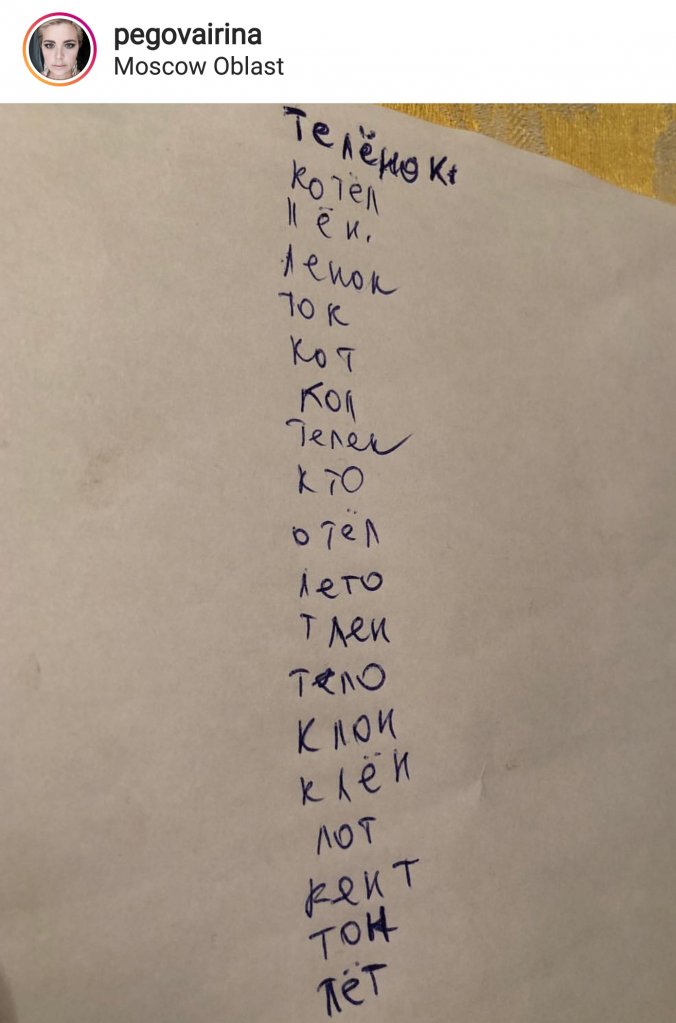 pegovairina
Moscow Oblast
Телёнок
котёл
лён.
Ленок
ток
Кот
Кол
Телек
кто
отёл
лето
тлен
тело
клон
клён
лот
кент
тон
лёт